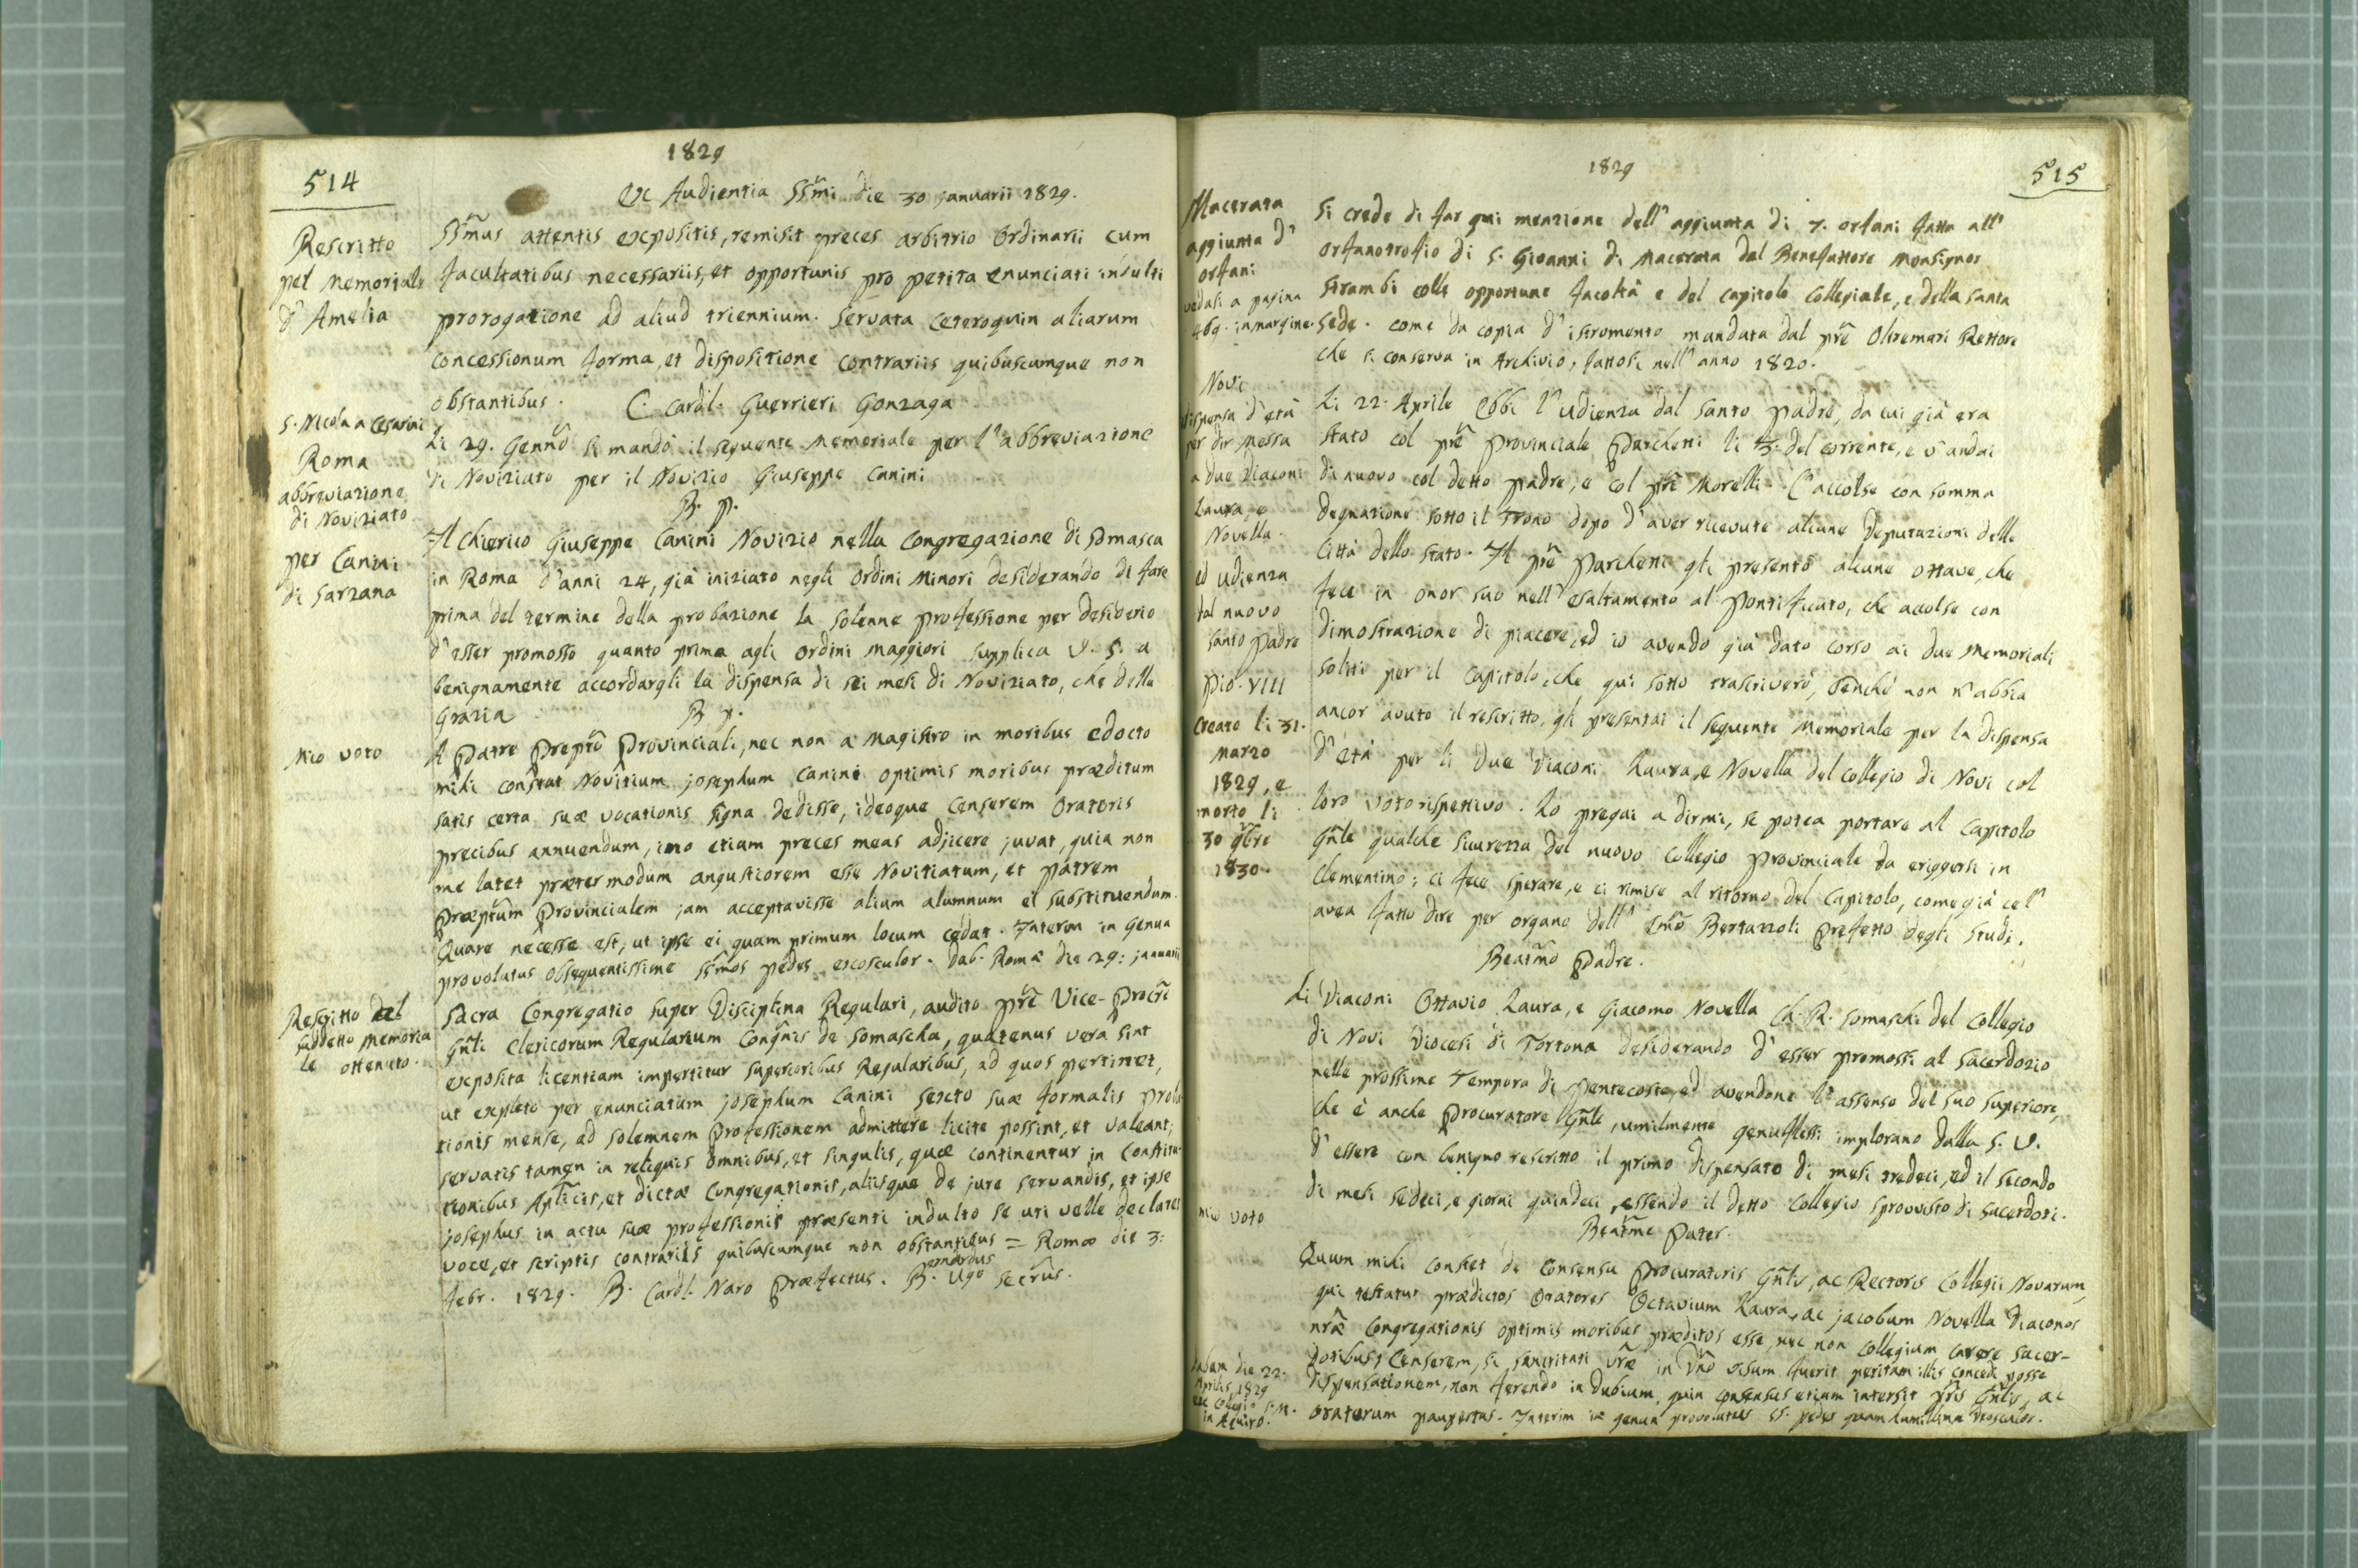 514
1829
Ex Audientia SSm̃i die 30 januarii 1829.
Rescritto
pel Memoriale
d' Amelia
SSm̃us attentis expositis, remisit preces arbitrio Ordinarii cum
facultatibus necessariis, et opportunis pro petita enunciati indulti
prorogatione ad aliud triennium. Servata ceteroquin aliarum
concessionum forma, et dispositione contrariis quibuscumque non
obstantibus. C. Cardl. Guerrieri Gonzaga
S. Nicola a Cesarini
Roma
abbreviazione
di Noviziato
per Canini
di Sarzana
Li 29. Genñ̃o si mandò il seguente Memoriale per l'abbreviazione
di Noviziato per il Novizio Giuseppe Canini
B. P.
Il Chierico Giuseppe Canini Novizio nella Congregazione di Somasca
in Roma d'anni 24, già iniziato negli Ordini Minori desiderando di fare
prima del termine della probazione la solenne professione per desiderio
d'esser promosso quanto prima agli Ordini Maggiori supplica V. S. a
benignamente accordargli la dispensa di sei mesi di Noviziato, che della
Grazia
B. P.
Mio voto
A Patre Prepto Provinciali, nec non a Magistro in moribus edocto
mihi constat Novitium josephum Canini optimis moribus præditum
satis certa suæ vocationis signa dedisse, ideoque censerem Oratoris
precibus annuendum, imo etiam preces meas adjicere juvat, quia non
me latet prætermodum angustiorem esse Novitiatum, et Patrem
Præptum Provincialem jam acceptavisse alium alumnum ei substituendum.
Quare necesse est, ut ipse ei quam primum locum cedat. Interim in genua
provolutus obsequentissime SSm̃os pedes exosculor. Dab. Romæ die 29: januarii
Rescritto del
suddetto Memoria
le ottenuto.
Sacra Congregatio super Disciplina Regulari, audito pr̃e Vice-Procr̃i
Gñli Clericorum Regularium Congñis de Somascha, quatenus vera sint
exposita licentiam impertitur superioribus Regularibus, ad quos pertinet,
ut expleto per enunciatum josephum Canini sexto suæ formalis proba
tionis mense, ad solemnem Professionem admittere licite possint, et valeant,
servatis tamen in reliquis omnibus, et singulis, quæ continentur in Constitu-
tionibus Aplicis, et dictæ Congregationis, aliisque de jure servandis, et ipse
josephus in actu suæ professionis præsenti indulto se uti velle declaret
voce, et scriptis contrariis quibuscumque non obstantibus = Romæ die 3:
febr. 1829. B. Cardl. Naro Præfectus. Bernardus Ugo secr̃us.
1829
515
Macerata
aggiunta d'
orfani
vedasi a pagina
469. in margine.
Si crede di far qui menzione dell' aggiunta di 7. orfani fatta all'
orfanotrofio di S. Gioanni di Macerata dal Benefattore Monsignor
Strambi colle opportune facoltà e del capitolo Collegiale, e della Santa
Sede. come da copia d'istromento mandata dal pr̃e Oltremari Rettore
che si conserva in Archivio, fattosi nell'anno 1820.
Novi
dispensa d'età
per dir Messa
a due Diaconi
Laura, e
Novella.
ed udienza
dal nuovo
santo Padre
Pio. VIII
creato li 31.
marzo
1829, e
morto li
30 9bre
1830.
Li 22. Aprile Ebbi l'udienza dal Santo Padre, da cui già era
stato col pr̃e Provinciale Parchetti li 3. del corrente, e v'andai
di nuovo col detto padre, e col pr̃e Morelli. C'accolse con somma
degnazione sotto il trono dopo d'aver ricevute alcune Deputazioni delle
Città dello Stato. Il pr̃e Parchetti gli presentò alcune ottave, che
fece in onor suo nell'esaltamento al Pontificato, che accolse con
dimostrazione di piacere, ed io avendo già dato corso ai due Memoriali
soliti per il Capitolo, che qui sotto trascriverò, benchè non n'abbia
ancor avuto il rescritto, gli presentai il seguente Memoriale per la dispensa
d'età per li due Diaconi Laura, e Novella del Collegio di Novi col
loro voto rispettivo. Lo pregai a dirmi, se potea portare al Capitolo
Gñle qualche sicurezza del nuovo Collegio Provinciale da eriggersi in
Clementino; ci fece sperare, e ci rimise al ritorno del Capitolo, come già ce l'
avea fatto dire per organo dell' Em̃o Bertazzoli Prefetto degli Studi.
Beatm̃o Padre.
Li Diaconi Ottavio Laura, e Giacomo Novella Ch. R. Somaschi del Collegio
di Novi Diocesi di Tortona desiderando d'esser promossi al Sacerdozio
nelle prossime Tempora di Pentecoste, ed avendone l'assenso del suo Superiore,
che è anche Procuratore Gñle, umilmente genuflessi implorano dalla S. V.
d'essere con benigno rescritto il primo dispensato di mesi tredeci, ed il secondo
di mesi sedeci, e giorni quindeci, essendo il detto Collegio sprovvisto di Sacerdoti.
Beatm̃e Pater.
mio voto
Quum mihi constet de consensu Procuratoris Gñlis, ac Rectoris Collegii Novarum,
qui testatur prædictos Oratores Octavium Laura, ac jacobum Novella Diaconos
nr̃æ Congregationis optimis moribus præditos esse, nec non Collegium carere sacer-
dotibus; Censerem, si sanctitati vr̃æ in Dño visum fuerit petitam illis concedi posse
dispensationem, non ferendo in dubium, quin consensus etiam intersit pr̃is Gñlis, ac
oratorum paupertas. Interim in genua provolutus SS. pedes quam humillime deosculor.
Dabam die 22.
Aprilis 1829
ex Collegio S. M.
in Aquiro.